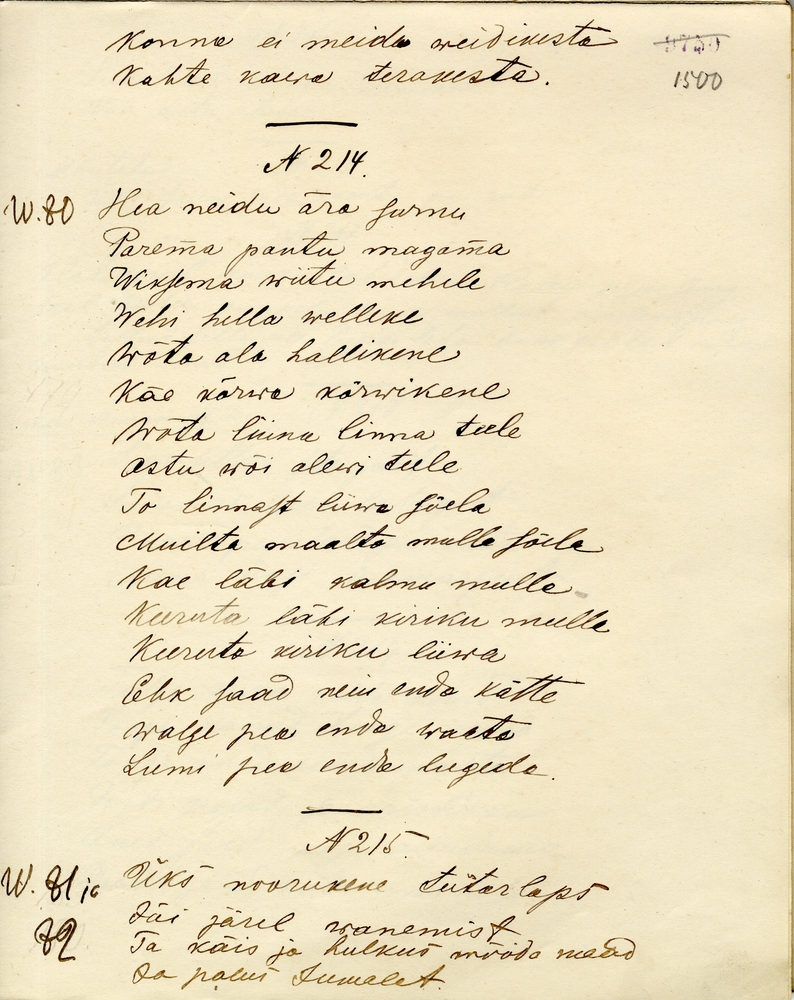 Konna ei meida weidikesta
Kahte kaera terakesta.
1500
N 214.
W. 80
Hea neidu ära surnu
Parema pantu magama
Wiksema wiitu mehele
Wehi hella welleke
Wõta ala hallikene
Käe kõrwa kõrwikene
Wõta liina linna teele
Astu wõi alewi teele
To linnast liiwa sõela
Muilta maalta mulle sõela
Kae läbi kalmu mulle
Keeruta läbi kiriku mulle
Keeruta kiriku liiwa
Ehk saad neiu enda kätte
Walge pea enda waeta
Lumi pea enda lugeda.
N 215.
W. 81 ja
82
Üks noorukene tütarlaps
Jäi järel wanemist
Ta käis ja hulkus mööda maad
Ja palus Jumalat.